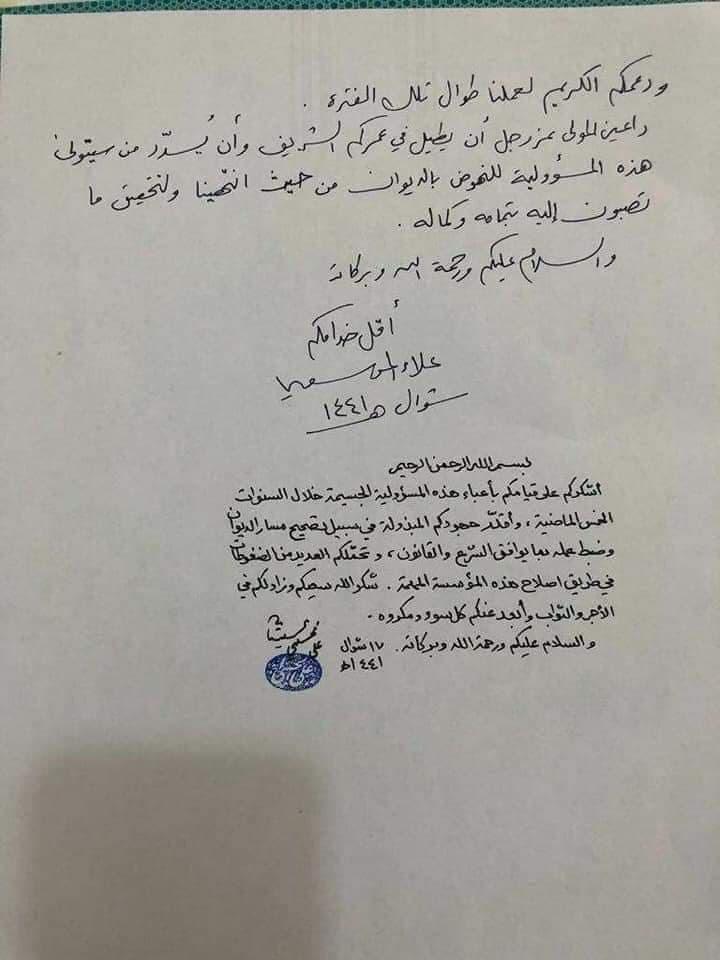 ودعمكم الكريم لعملنا طوال تلك الفترة .
داعين المولى عز وجل أن يطيل في عمركم الشريف وأن يُسدّد من سيتولى
هذه المسؤولية للنهوض بالديوان من حيث انتهينا ولتحقيق ما
تصبون إليه بتمامه وكماله .
والسلام عليكم ورحمة الله وبركاته
أقل خدامكم
علاء الموسوي
شوال ١٤٤١هـ
بسم الله الرحمن الرحيم
أشكركم على قيامكم بأعباء هذه المسؤولية الجسيمة خلال السنوات
الخمس الماضية ، وأقدّر جهودكم المبذولة في سبيل تصحيح مسار الديوان
وضبط عمله بما يوافق الشرع والقانون ، وتحمّلكم العديد من الضغوطات
في طريق اصلاح هذه المؤسسة المهمة . شكر الله سعيكم وزاد لكم في
الأجر والثواب وأبعد عنكم كل سوء ومكروه .
والسلام عليكم ورحمة الله وبركاته . ١٧ شوال
١٤٤١هـ
علي الحسيني السيستاني